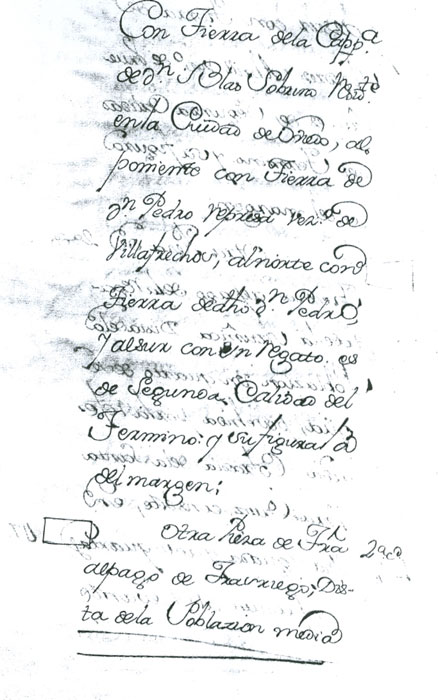 Con Tierra dela Capp.a
de d.n Blas Sobrino Resid.te
en la Ciudad de Oviedo, al
poniente con Tierra de
d.n Pedro Represa vez.o de
Villafrechos, al norte con
Tierra de dho d.n Pedro,
y al sur con un regato. es
de Segunda Calidad del
Termino: y su figura la
del margen;
Otra Pieza de Tra
al pago de Dis-
ta dela Poblazion media